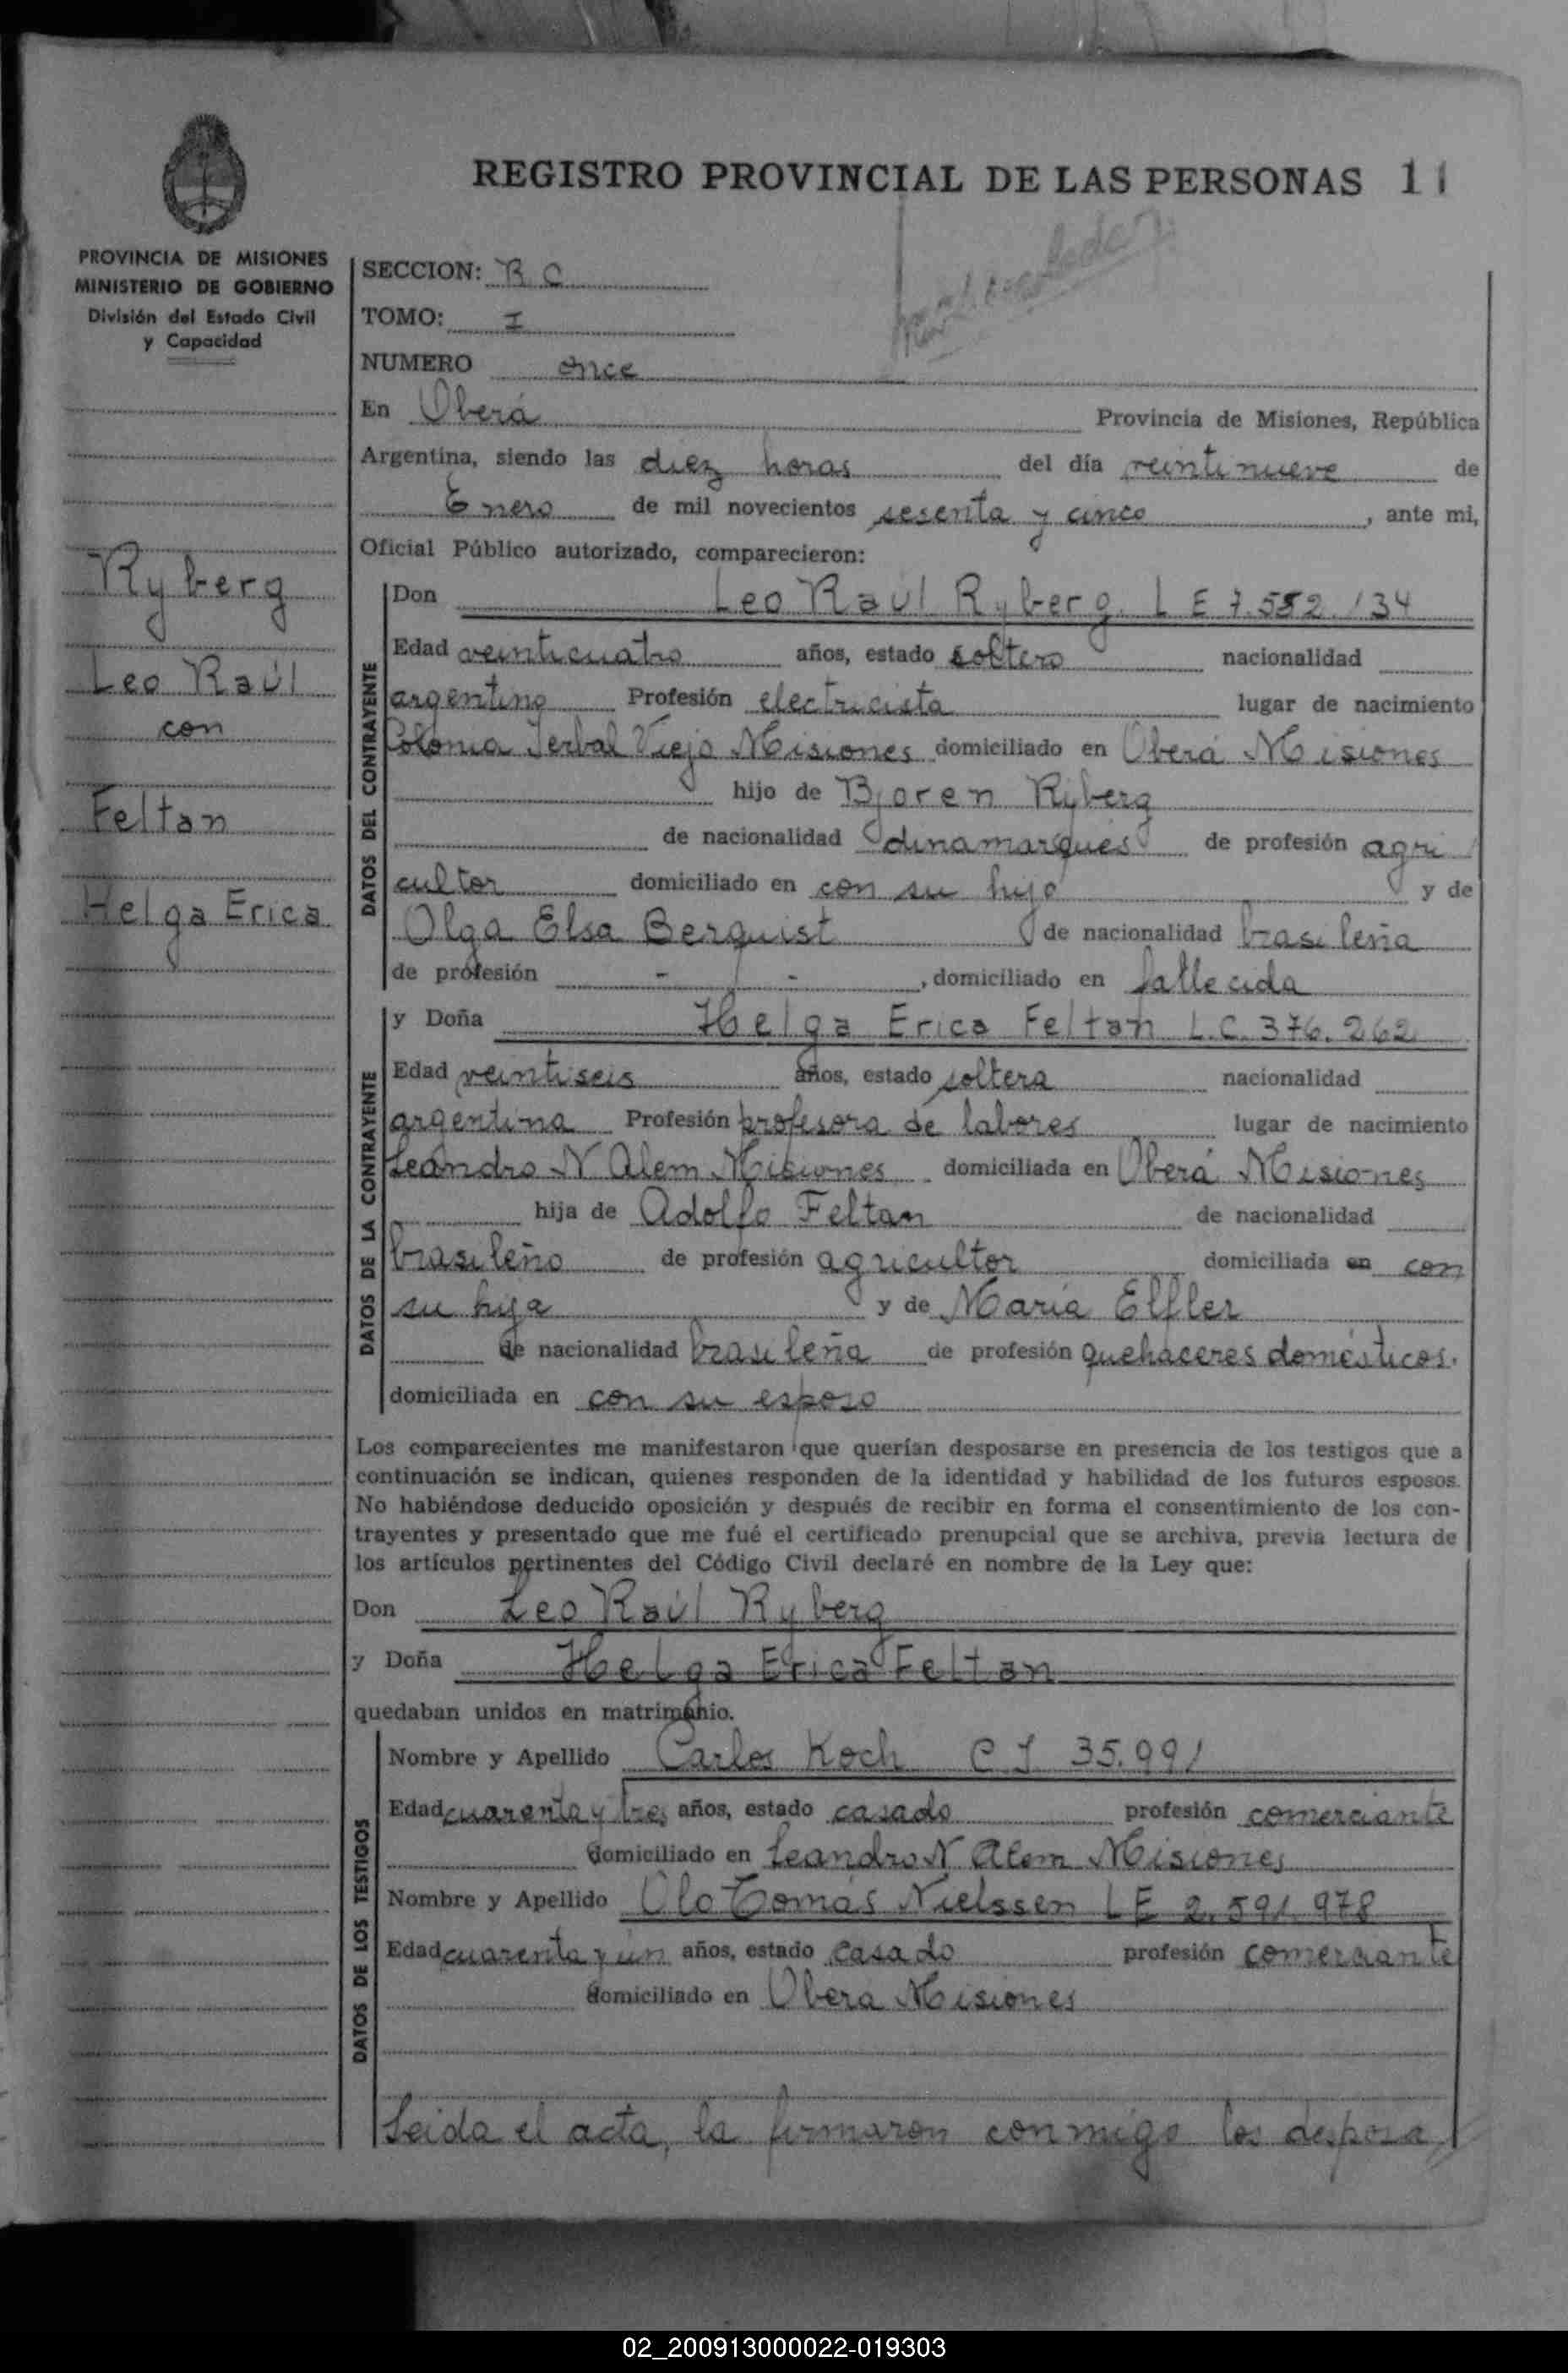 REGISTRO PROVINCIAL DE LAS PERSONAS 11
PROVINCIA DE MISIONES
MINISTERIO DE GOBIERNO
División del Estado Civil
y Capacidad
Ryberg
Leo Raúl
con
Feltan
Helga Erica
SECCION: R C
TOMO: I
NUMERO once
En Oberá Provincia de Misiones, República
Argentina, siendo las diez horas del día veintinueve de
Enero de mil novecientos sesenta y cinco, ante mi,
Oficial Público autorizado, comparecieron:
DATOS DEL CONTRAYENTE
Don Leo Raul Ryberg L E 7.552.134
Edad veinticuatro años, estado soltero nacionalidad
argentino Profesión electricista lugar de nacimiento
Colonia Yerbal Viejo Misiones domiciliado en Oberá Misiones
hijo de Bjoren Ryberg
de nacionalidad dinamarqués de profesión agri
cultor domiciliado en con su hijo y de
Olga Elsa Berquist de nacionalidad brasileña
de profesión - - , domiciliado en fallecida
DATOS DE LA CONTRAYENTE
y Doña Helga Erica Feltan L.C. 376.262
Edad veintiseis años, estado soltera nacionalidad
argentina Profesión profesora de labores lugar de nacimiento
Leandro N Alem Misiones domiciliada en Oberá Misiones
hija de Adolfo Feltan de nacionalidad
brasileño de profesión agricultor domiciliada en con
su hija y de María Elfler
de nacionalidad brasileña de profesión quehaceres domésticos.
domiciliada en con su esposo
Los comparecientes me manifestaron que querían desposarse en presencia de los testigos que a
continuación se indican, quienes responden de la identidad y habilidad de los futuros esposos.
No habiéndose deducido oposición y después de recibir en forma el consentimiento de los con-
trayentes y presentado que me fué el certificado prenupcial que se archiva, previa lectura de
los artículos pertinentes del Código Civil declaré en nombre de la Ley que:
Don Leo Raúl Ryberg
y Doña Helga Erica Feltan
quedaban unidos en matrimonio.
DATOS DE LOS TESTIGOS
Nombre y Apellido Carlos Koch C I 35.991
Edad cuarenta y tres años, estado casado profesión comerciante
domiciliado en Leandro N Alem Misiones
Nombre y Apellido Olo Tomás Nielssen L E 2.591.978
Edad cuarenta y un años, estado casado profesión comerciante
domiciliado en Obera Misiones
Leida el acta, la firmaron conmigo los desposa
02_200913000022-019303